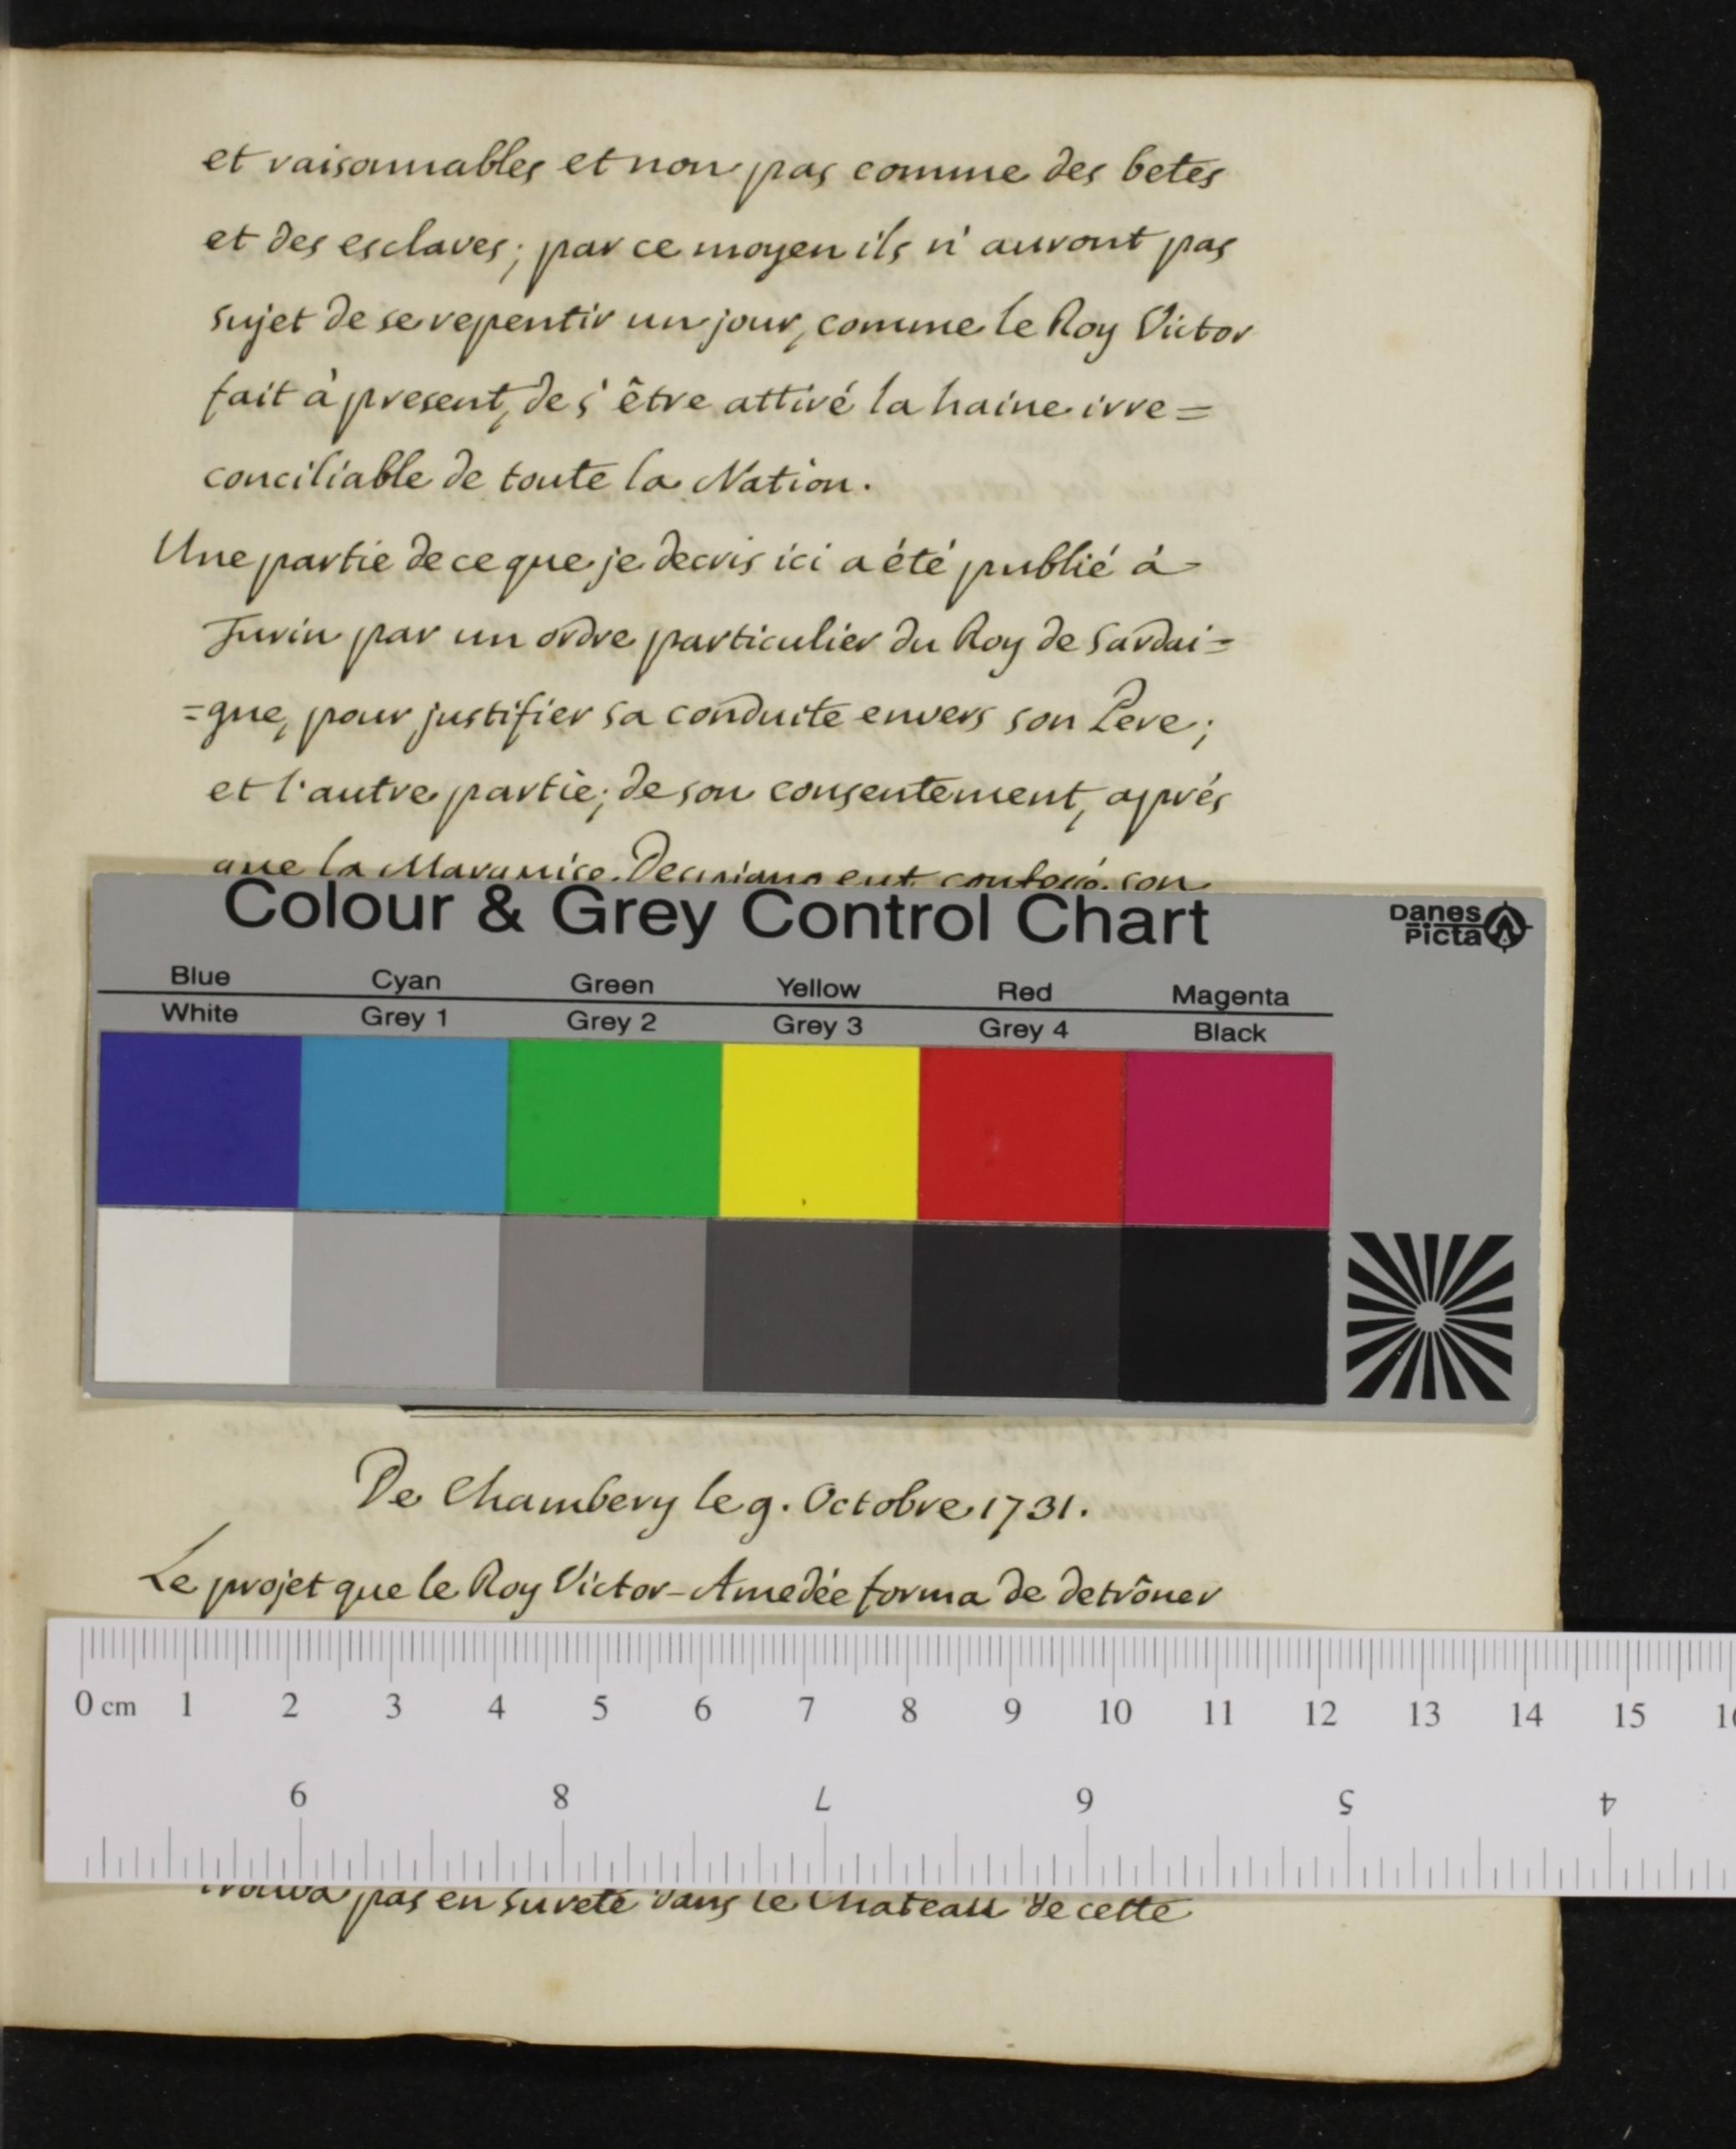 et raisonnables et non pas comme des betes
et des esclaves; par ce moyen ils n'auront pas
sujet de se repentir un jour, comme le Roy Victor
fait à present, de s'être attiré la haine irre=
conciliable de toute la Nation.
Une partie de ce que je decris ici a été publié à
Turin par un ordre particulier du Roy de Sardai=
=gne, pour justifier sa conduite envers son Pere;
et l'autre partie; de son consentement, aprés
que la Marquise eut confessé son
Colour & Grey Control Chart
Danes
Picta
Blue Cyan Green Yellow Red Magenta
White Grey 1 Grey 2 Grey 3 Grey 4 Black
De Chambery le 9. Octobre 1731.
Le projet que le Roy Victor-Amedée forma de detrôner
0 cm 1 2 3 4 5 6 7 8 9 10 11 12 13 14 15
9 8 7 6 5 4
trouva pas en sureté dans le Chateau de cette